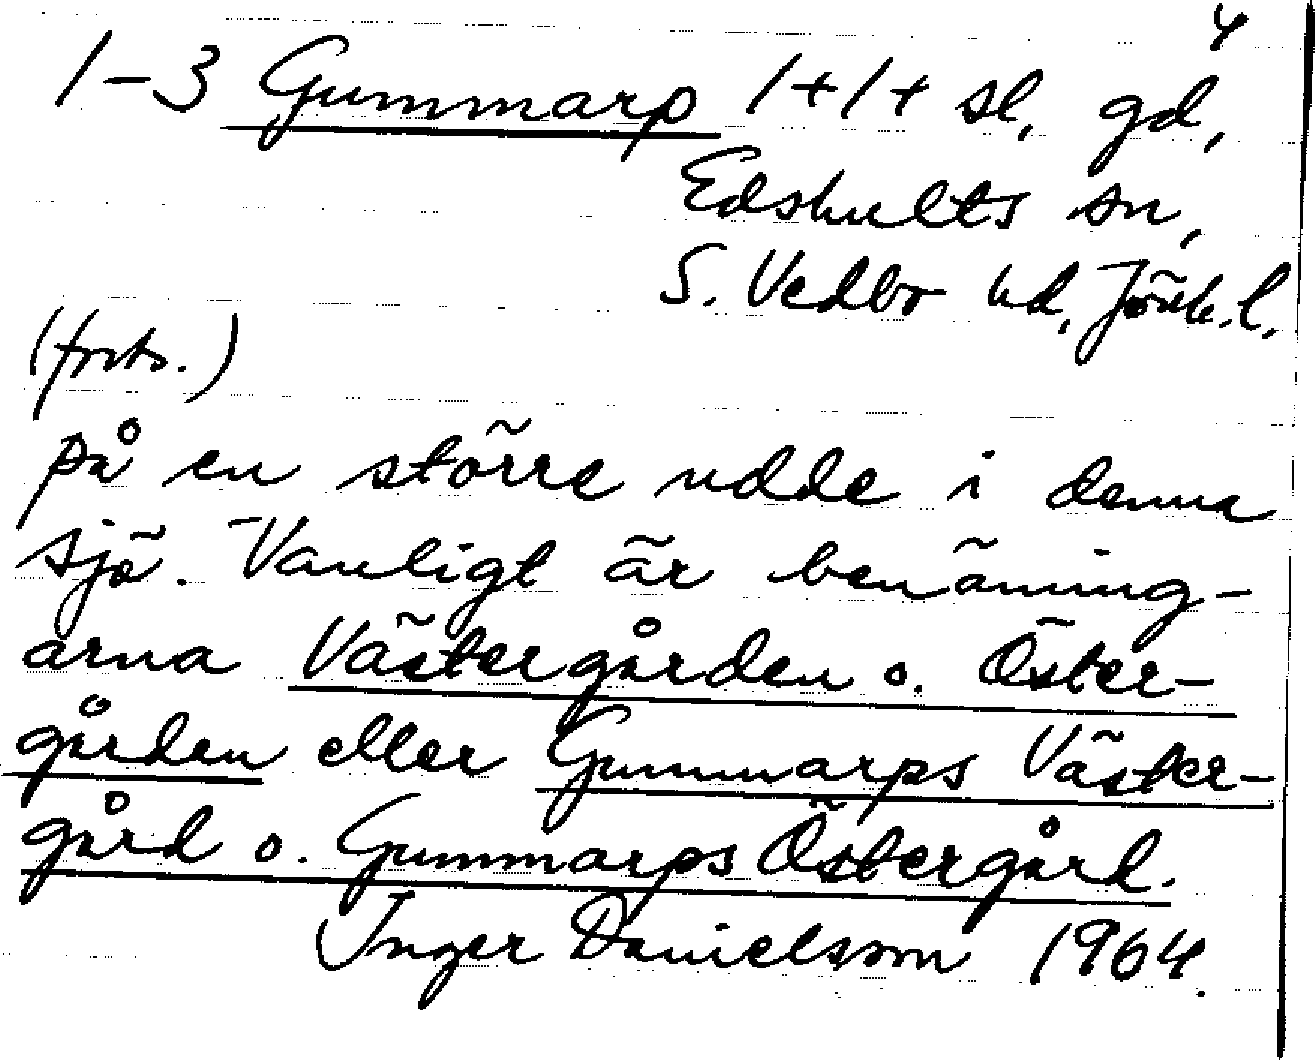 4
1-3 Gummarp 1+1+ sl, gd,
Edshults sn,
S. Vedbo hd, Jönk.l.
(forts.)
på en större udde i denna
sjö. Vanligt är benäming-
arna Västergården o. Öster-
gården eller Gummarps Väster-
gård o. Gummarps Östergård.
Inger Danielsson 1964.